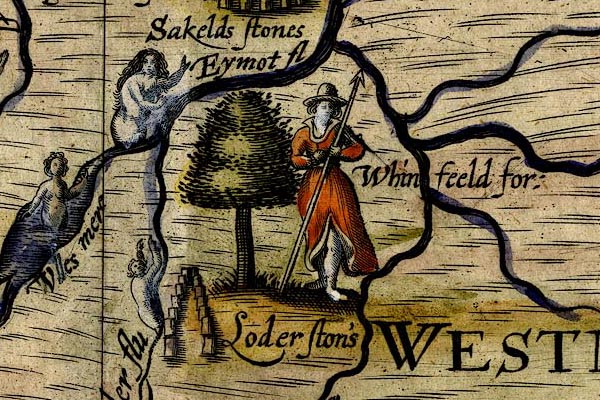 Sakelds stones
Eymot fl
Whin feeld for:
Vlles mere
Loder ston's
der flu
WEST